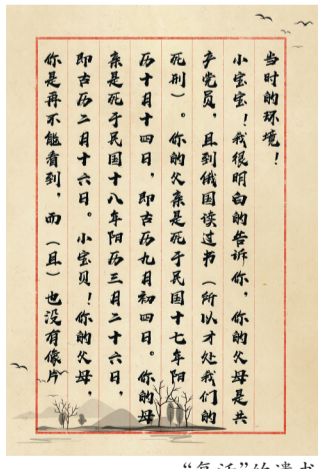 当时的环境！
小宝宝！我很明白的告诉你，你的父母是共
产党员，且到俄国读过书（所以才处我们的
死刑）。你的父亲是死于民国十七年阳
历十月十四日，即古历九月初四日。你的母
亲是死于民国十八年阳历三月二十六日，
即古历二月十六日。小宝贝！你的父母，
你是再不能看到，而（且）也没有像片